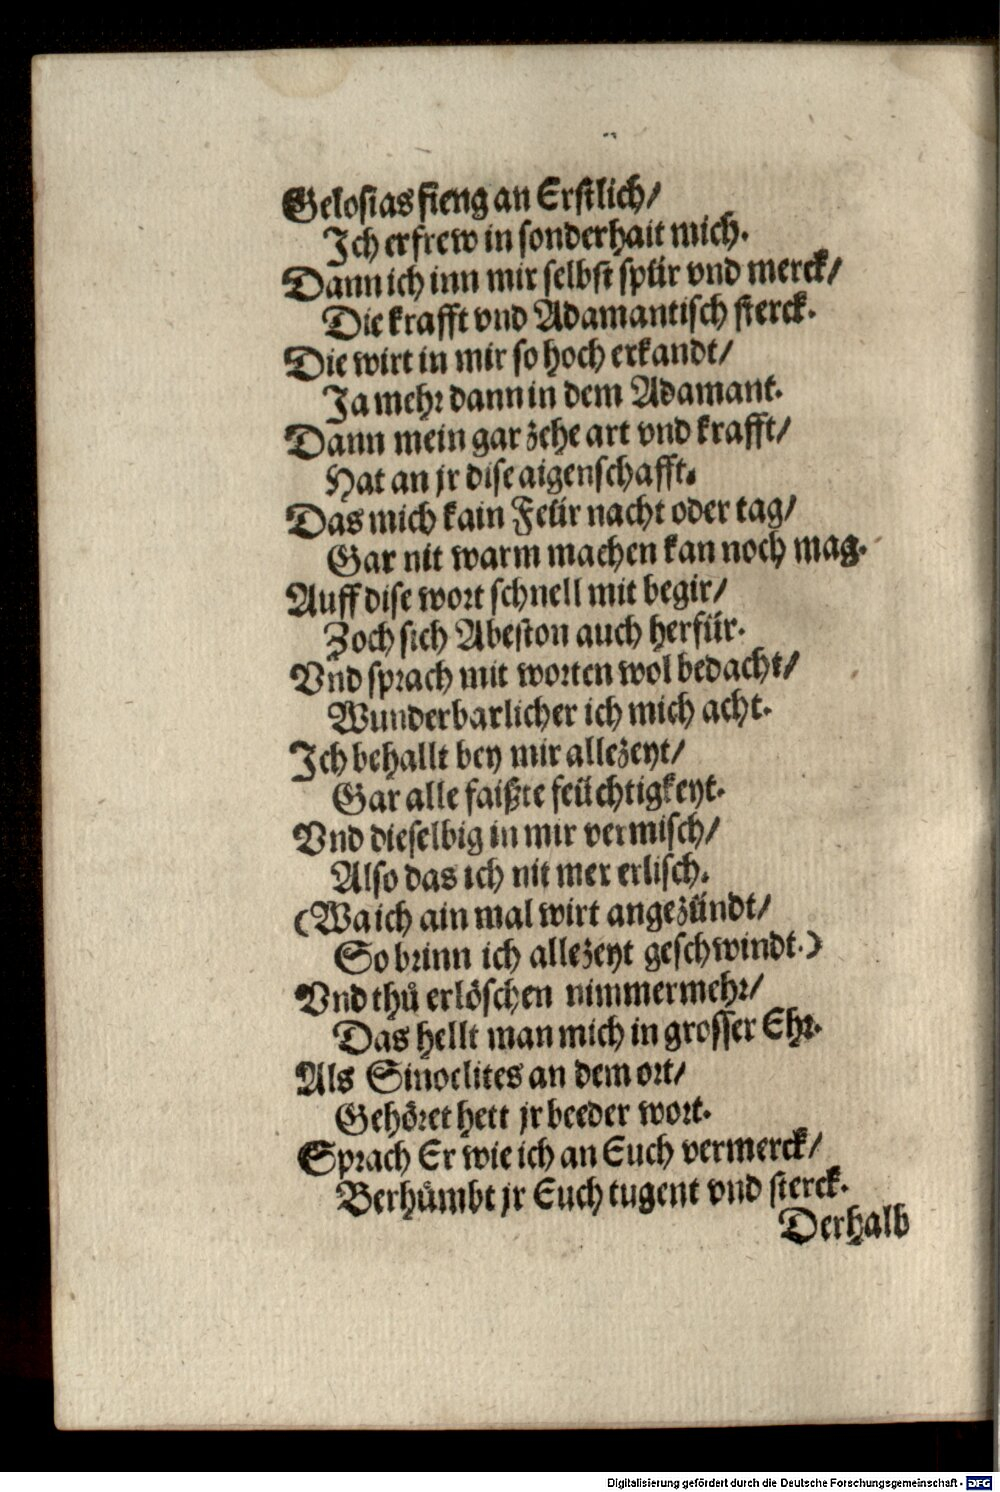 Gelosias fieng an Erstlich/
Ich erfrew in sonderhait mich.
Dann ich inn mir selbst spür vnd merck/
Die krafft vnd Adamantisch sterck.
Die wirt in mir so hoch erkandt/
Ja mehr dann in dem Adamant.
Dann mein gar zehe art vnd krafft/
Hat an jr dise aigenschafft.
Das mich kain Feür nacht oder tag/
Gar nit warm machen kan noch mag.
Auff dise wort schnell mit begir/
Zoch sich Abeston auch herfür.
Vnd sprach mit worten wol bedacht/
Wunderbarlicher ich mich acht.
Ich behallt bey mir allezeyt/
Gar alle faißte feüchtigkeyt.
Vnd dieselbig in mir vermisch/
Also das ich nit mer erlisch.
(Wa ich ain mal wirt angezündt/
So brinn ich allezeyt geschwindt.)
Vnd thů erlöschen nimmermehr/
Das hellt man mich in grosser Ehr.
Als Sinoclites an dem ort/
Gehöret hett jr beeder wort.
Sprach Er wie ich an Euch vermerck/
Berhůmbt jr Euch tugent vnd sterck.
Derhalb
Digitalisierung gefördert durch die Deutsche Forschungsgemeinschaft - DFG